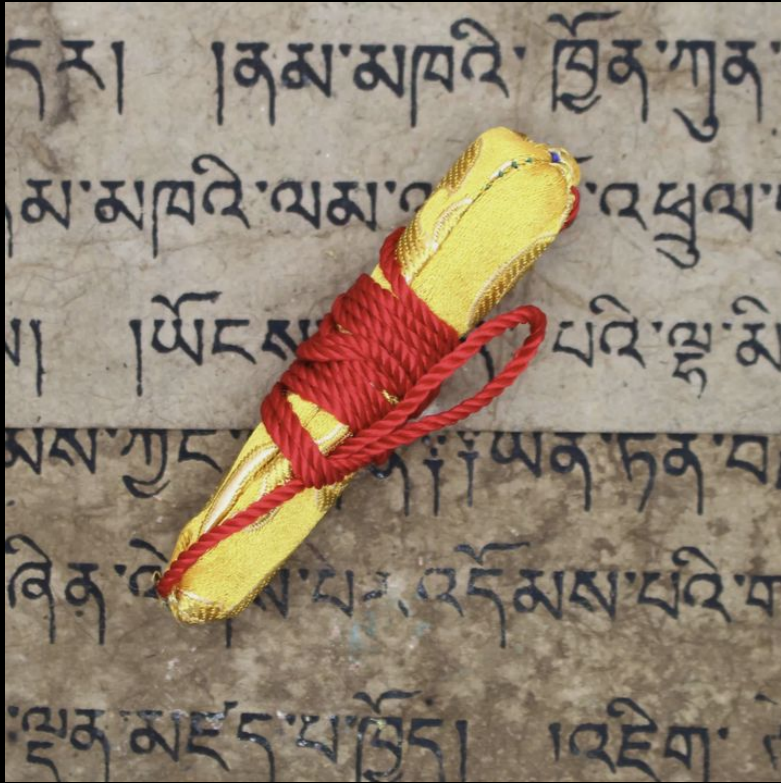 དར། །ནམ་མཁའི་ཁྱོན་ཀུན་
མ་མཁའི་ལམ་ འཕྲུལ་
། །ཡོངས པའི་ལྷ་མི
མས་ཀྱང ཡན་ཏན་
ཞིན་ འདོམས་པའི་
ལྡན་མཛད་པ་ཁྱོད། །འཇིག་